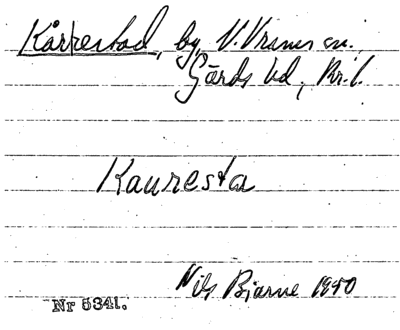 Kårrestad, by, V. Vram sn.,
Gärds hd, Kr. l.
Kauresta
Nils Bjarne 1950
Nr 5341.